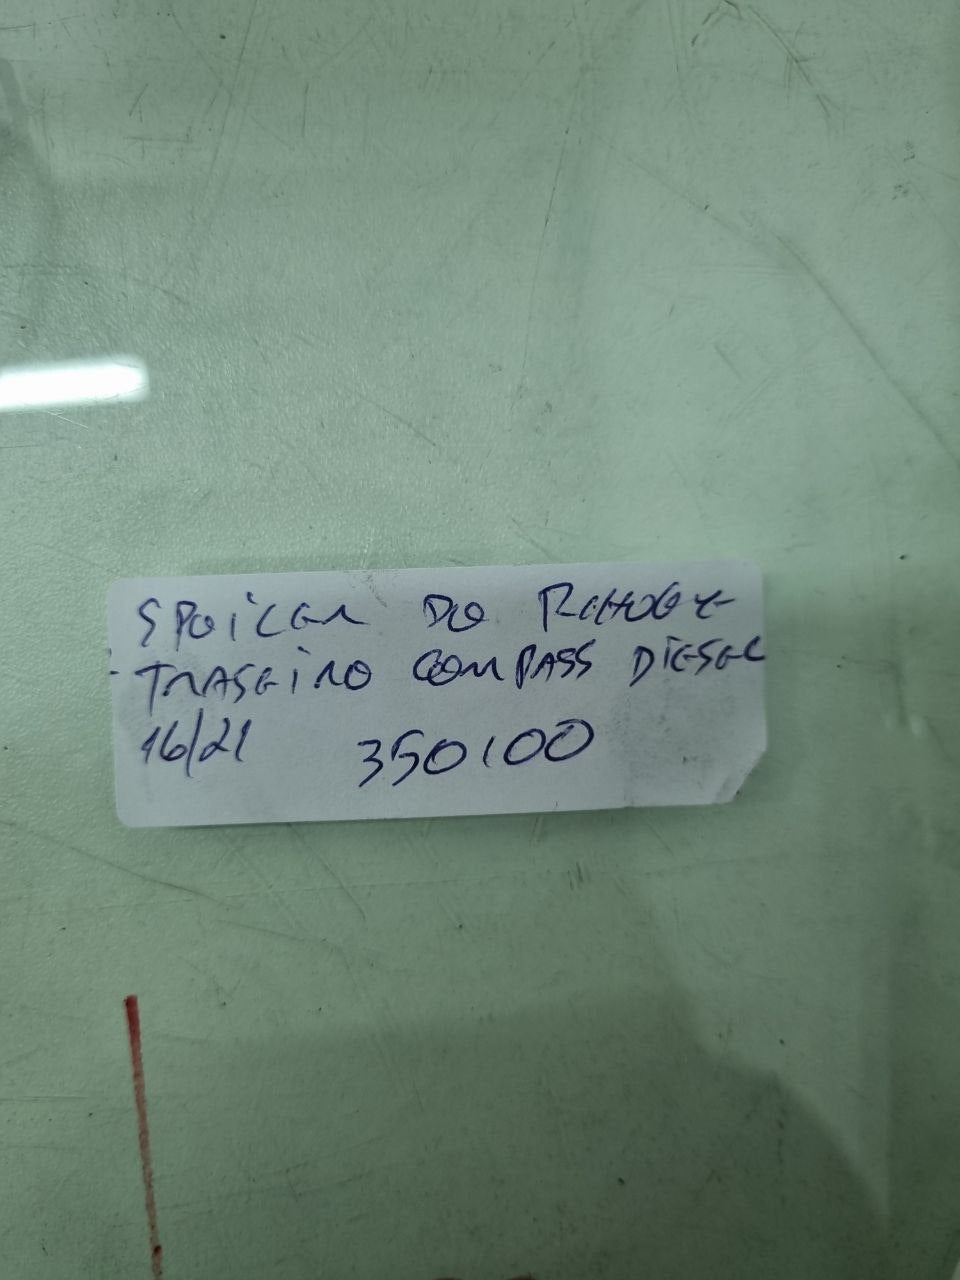 SPOiLER DO REBOQUE
TRASEiRO COMPASS DiESEL
16/21 350,00